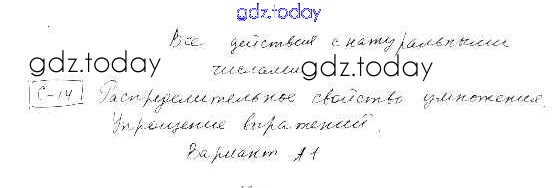 gdz.today
Все действия с натуральными
gdz.today числами gdz.today
С-14 Распределительное свойство умножения.
Упрощение выражений.
Вариант А1